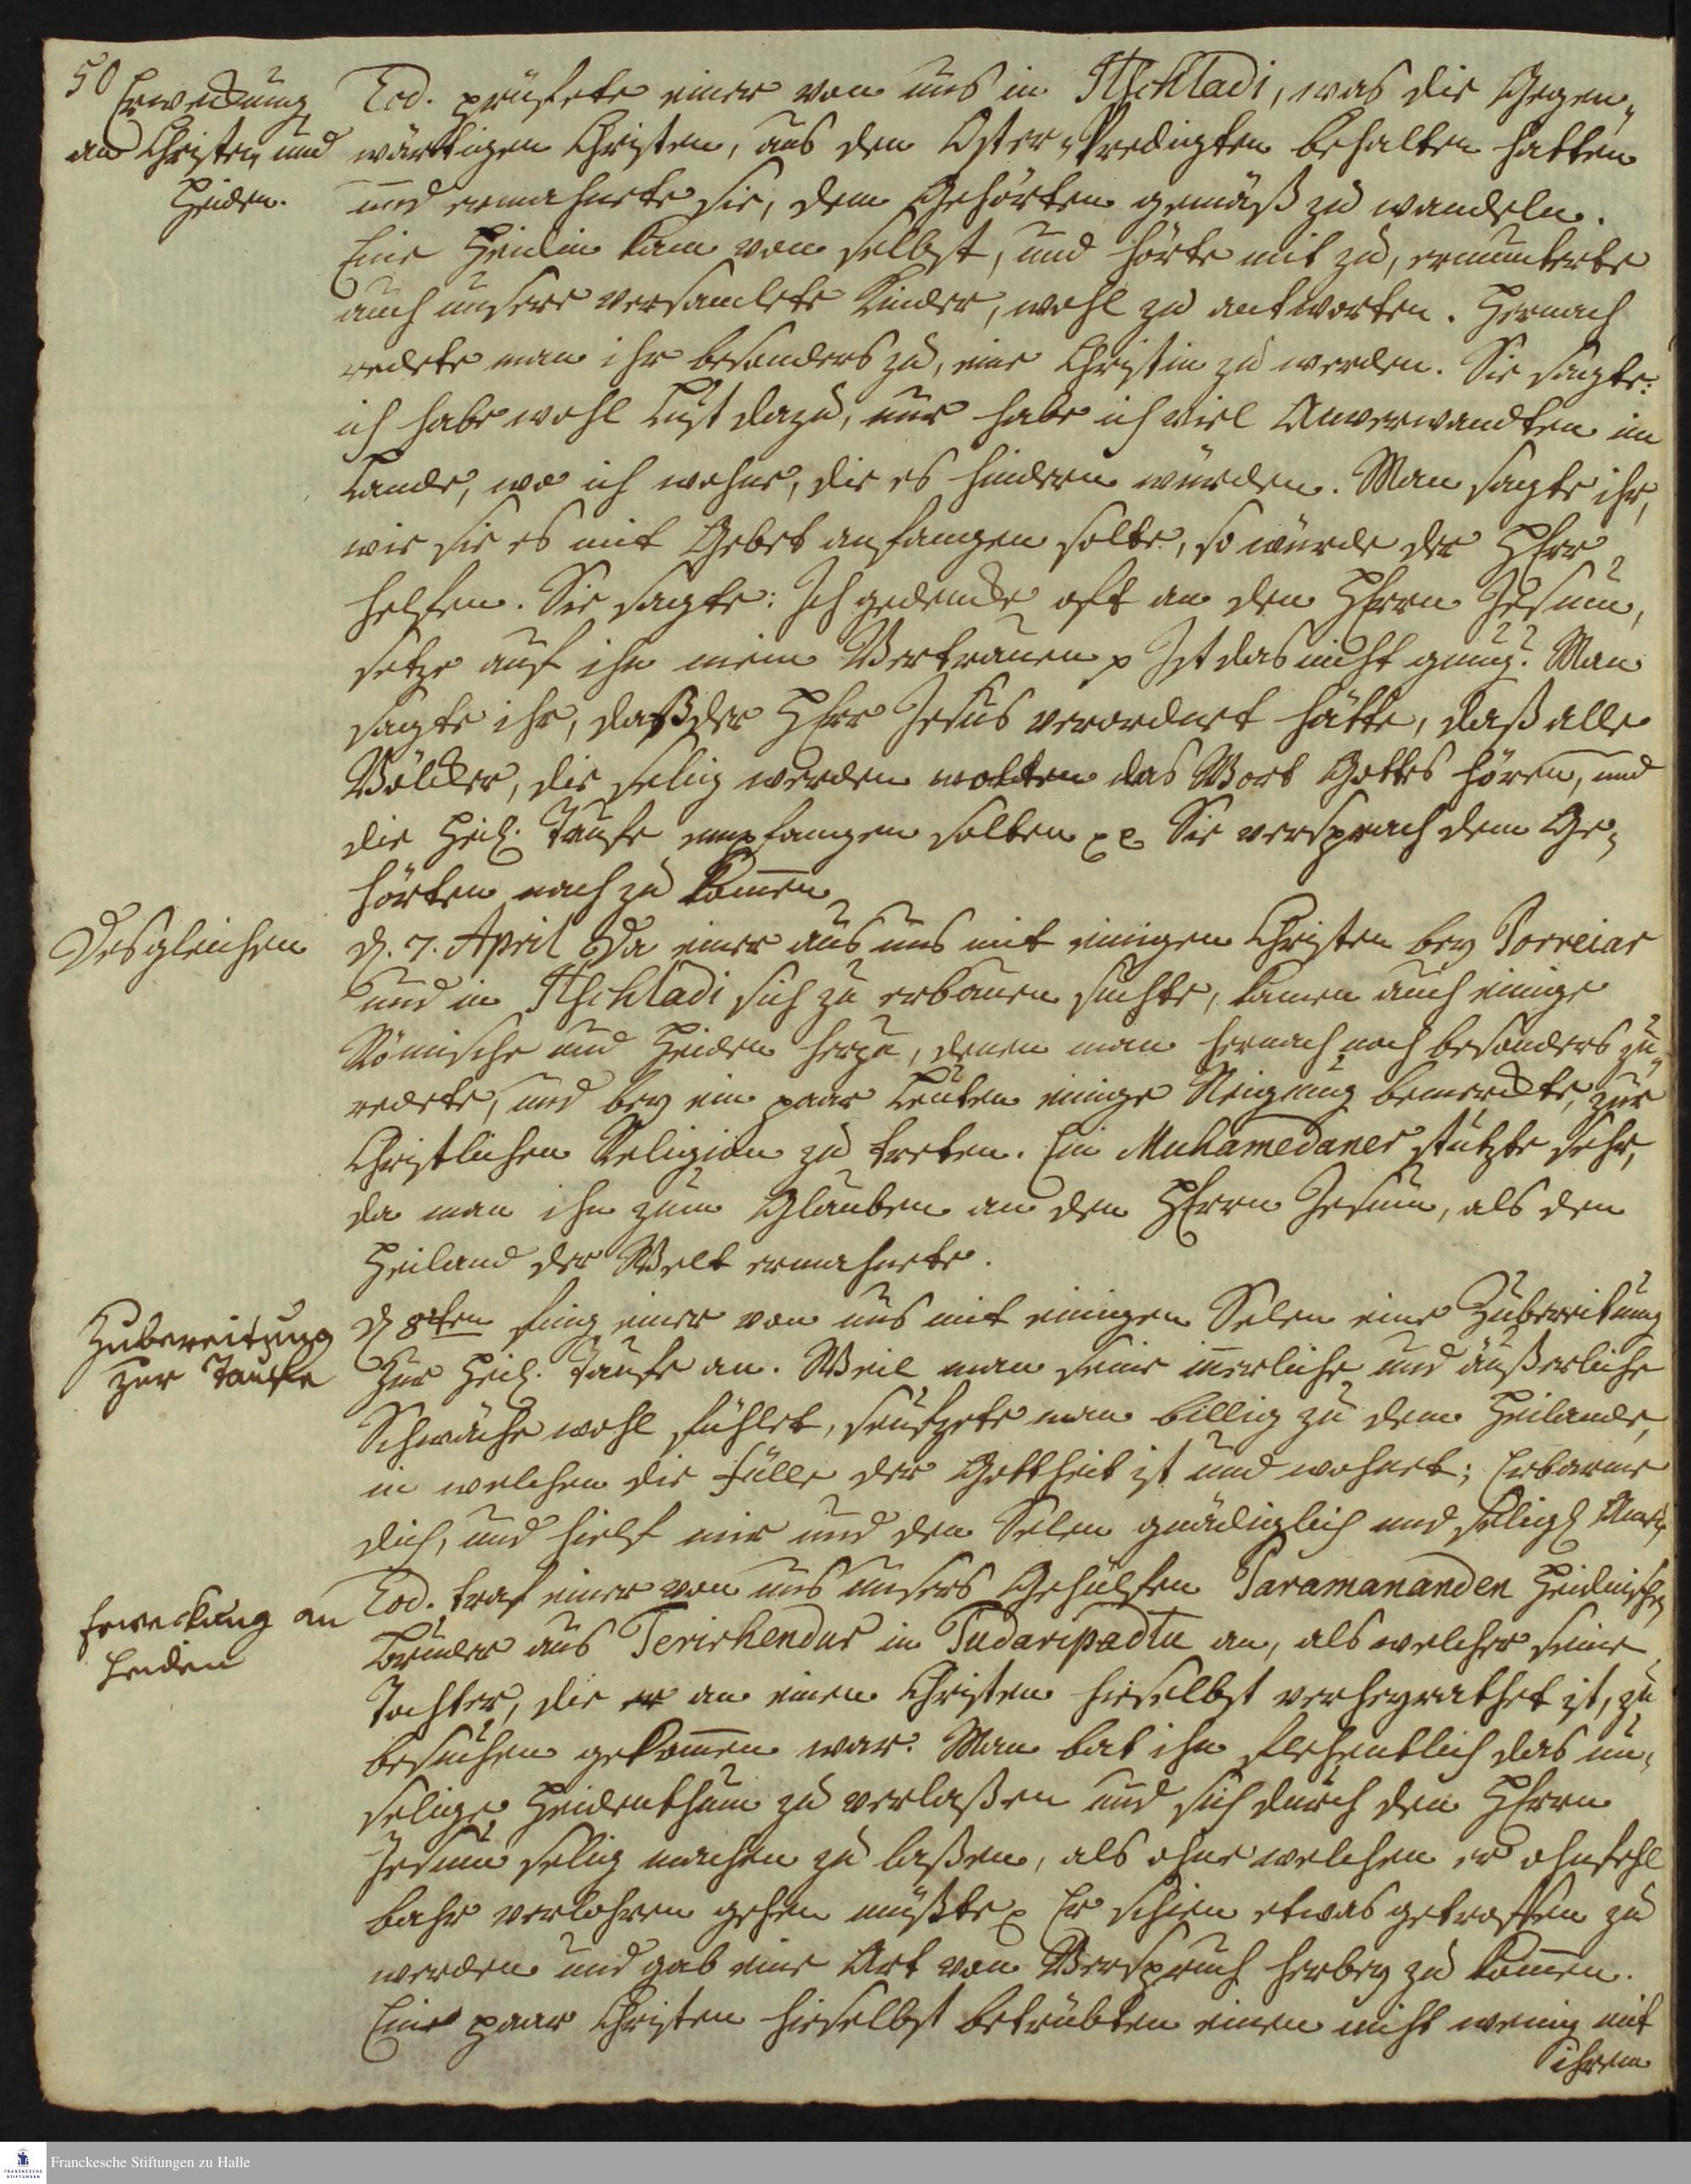 50
Erweckung
an Christen und
Heiden.
Eod. prüfete einer von uns in Itschladi, was die Gegen„
wärtigen Christen, aus den Oster-Predigten behalten hatten
und ermahnete sie, dem Gehörten gemäß zu wandeln.
Eine Heidin kam von selbst, und hörte mit zu, ermunterte
auch unsere versamlete Kinder, wohl zu antworten. Hernach
redete man ihr besonders zu, eine Christin zu werden. Sie sagte:
ich habe wohl Lust dazu, nur habe ich viel Anverwandten im
Lande, wo ich wohne, die es hindern würden. Man sagte ihr,
wie sie es mit Gebet anfangen solte, so würde der HErr
helfen. Sie sagte: Ich gedencke oft an den HErrn Jesum,
setze auf ihn mein Vertrauen p Ist das nicht genug? Man
sagte ihr, daß der HErr Jesus verordnet hätte, daß alle
Völcker, die selig werden wolten das Wort Gottes hören, und
die Heil. Taufe empfangen solten pp. Sie versprach dem Ge„
hörten nach zu kom̄en.
Desgleichen
d. 7. April Da einer aus uns mit einigen Christen bey Porreiar
und in Itschladi sich zu erbauen suchte, kamen auch einige
Römische und Heiden herzu, denen man hernach noch besonders zu„
redete, und bey ein paar Leuten einige Neigung bemerckte, zur
Christlichen Religion zu treten. Ein Muhamedaner stutzte sehr,
da man ihn zum Glauben an den HErrn Jesum, als den
Heiland der Welt ermahnete.
Zubereitung
zur Taufe
d 8ten fing einer von uns mit einigen Selen eine Zubereitung
zur Heil. Taufe an. Weil man seine innerliche und äußerliche
Schwäche wohl fühlet, seufzete man billig zu dem Heilande,
in welchen die Fülle der Gottheit ist und wohnet; Erbarme
dich, und hielf mir und den Selen gnädiglich und selig
Erweckung an
Heiden
Eod. traf einer von uns unsers Gehülfen Paramananden Heidnischen
Bruder aus Terirhendur in Tudaripadtu an, als welcher seine
Tochter, die er an einen Christen hieselbst verheyrathet ist, zu
besuchen gekom̄en war. Man bat ihn flehentlich das un„
selige Heidenthum zu verlaßen und sich durch den HErrn
Jesum selig machen zu laßen, als ohne welchen er ohnfehl
bahr verlohren gehen müßte p Er schien etwas getroffen zu
werden und gab eine Art von Verspruch herbey zu kom̄en.
Eine paar Christen hieselbst betrübten einen nicht wenig mit
ihrem
Franckesche Stiftungen zu Halle